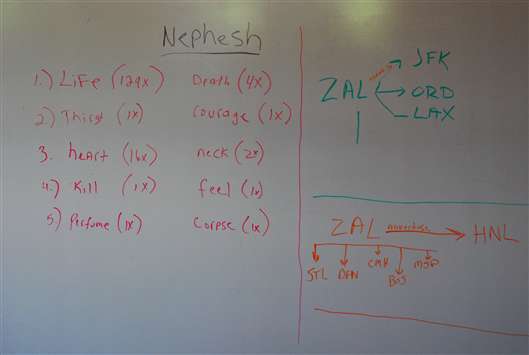 Nephesh
1.) Life (129x) Death (4x)
2) Thirst (1x) Courage (1x)
3. heart (16x) neck (2x)
4.) Kill (1x) feel (1x)
5) Perfume (1x) Corpse (1x)
JFK
ZAL ORD
LAX
ZAL HNL
STL DEN CMH BOS MSP